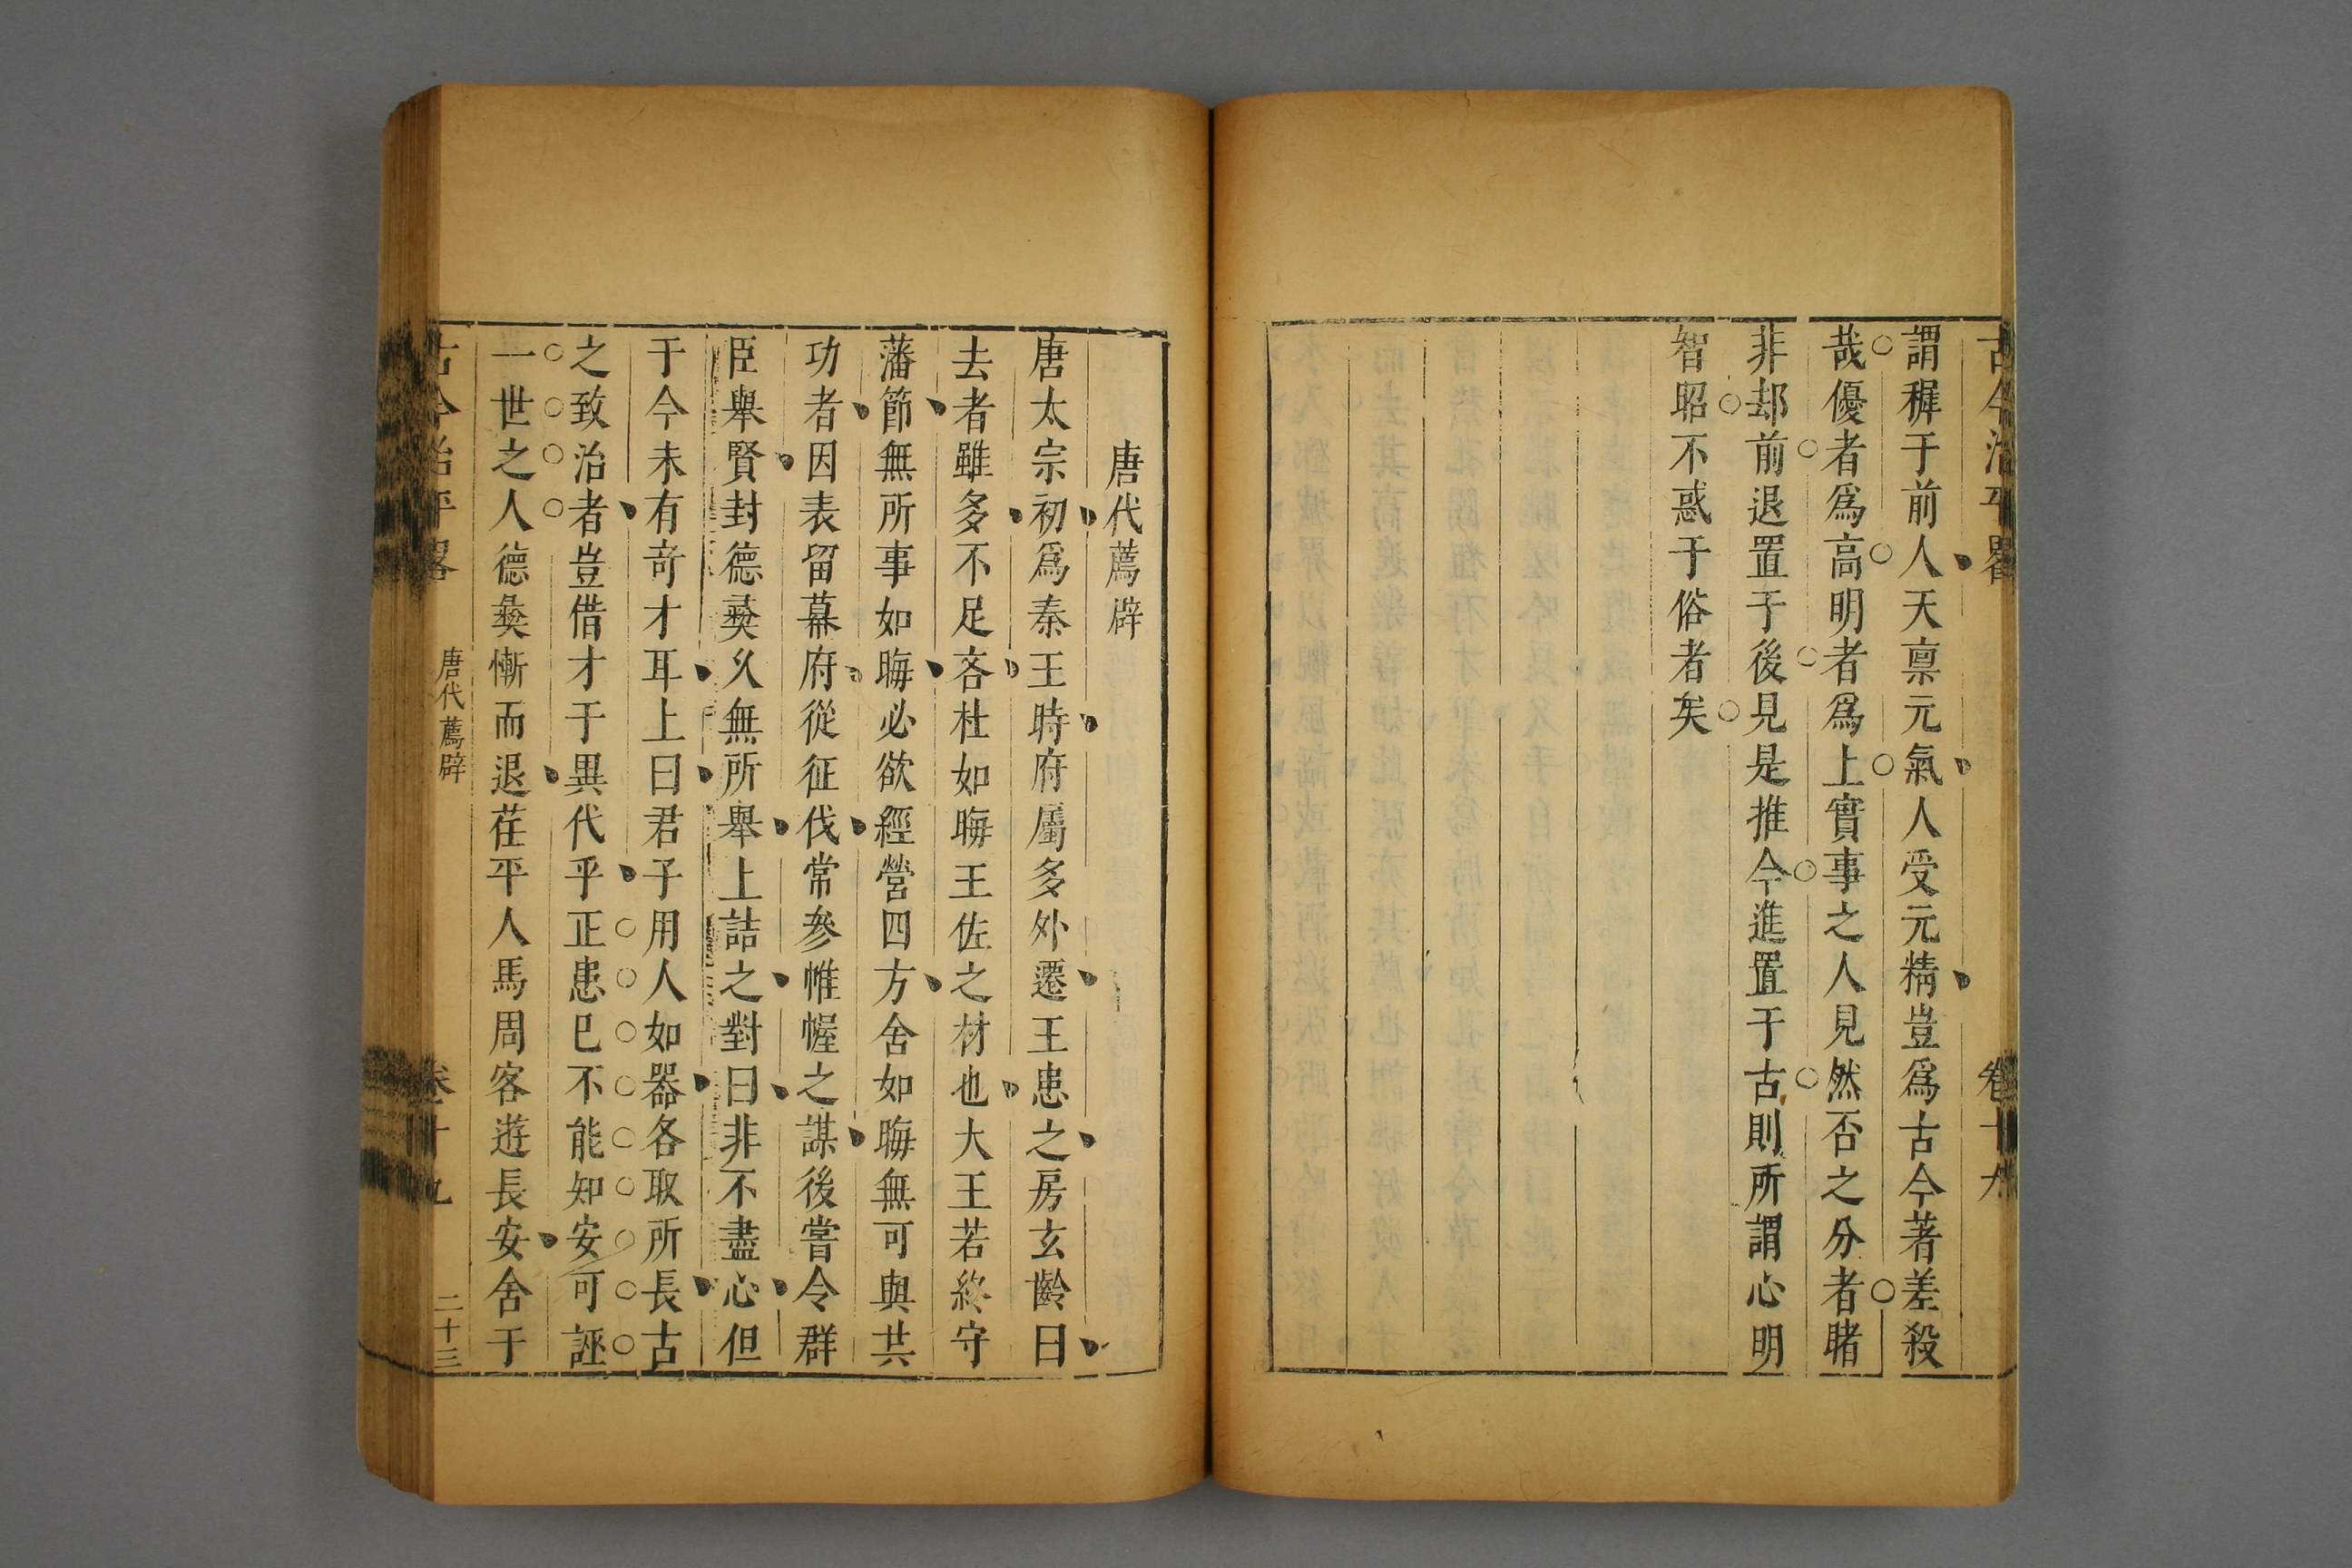 古今治平畧 卷十九
謂穉于前人天禀元氣人受元精豈爲古今著差殺
哉優者爲高明者爲上實事之人見然否之分者睹
非却前退置于後見是推今進置于古則所謂心明
智昭不惑于俗者矣
唐代薦辟
唐太宗初爲秦王時府屬多外遷王患之房玄齡曰
去者雖多不足吝杜如晦王佐之材也大王若終守
藩節無所事如晦必欲經營四方舍如晦無可與共
功者因表留幕府從征伐常參帷幄之謀後嘗令群
臣舉賢封德彝久無所舉上詰之對曰非不盡心但
于今未有奇才耳上曰君子用人如器各取所長古
之致治者豈借才于異代乎正患已不能知安可誣
一世之人德彝慚而退茌平人馬周客遊長安舍于
古今治平畧 唐代薦辟 卷十九 二十三